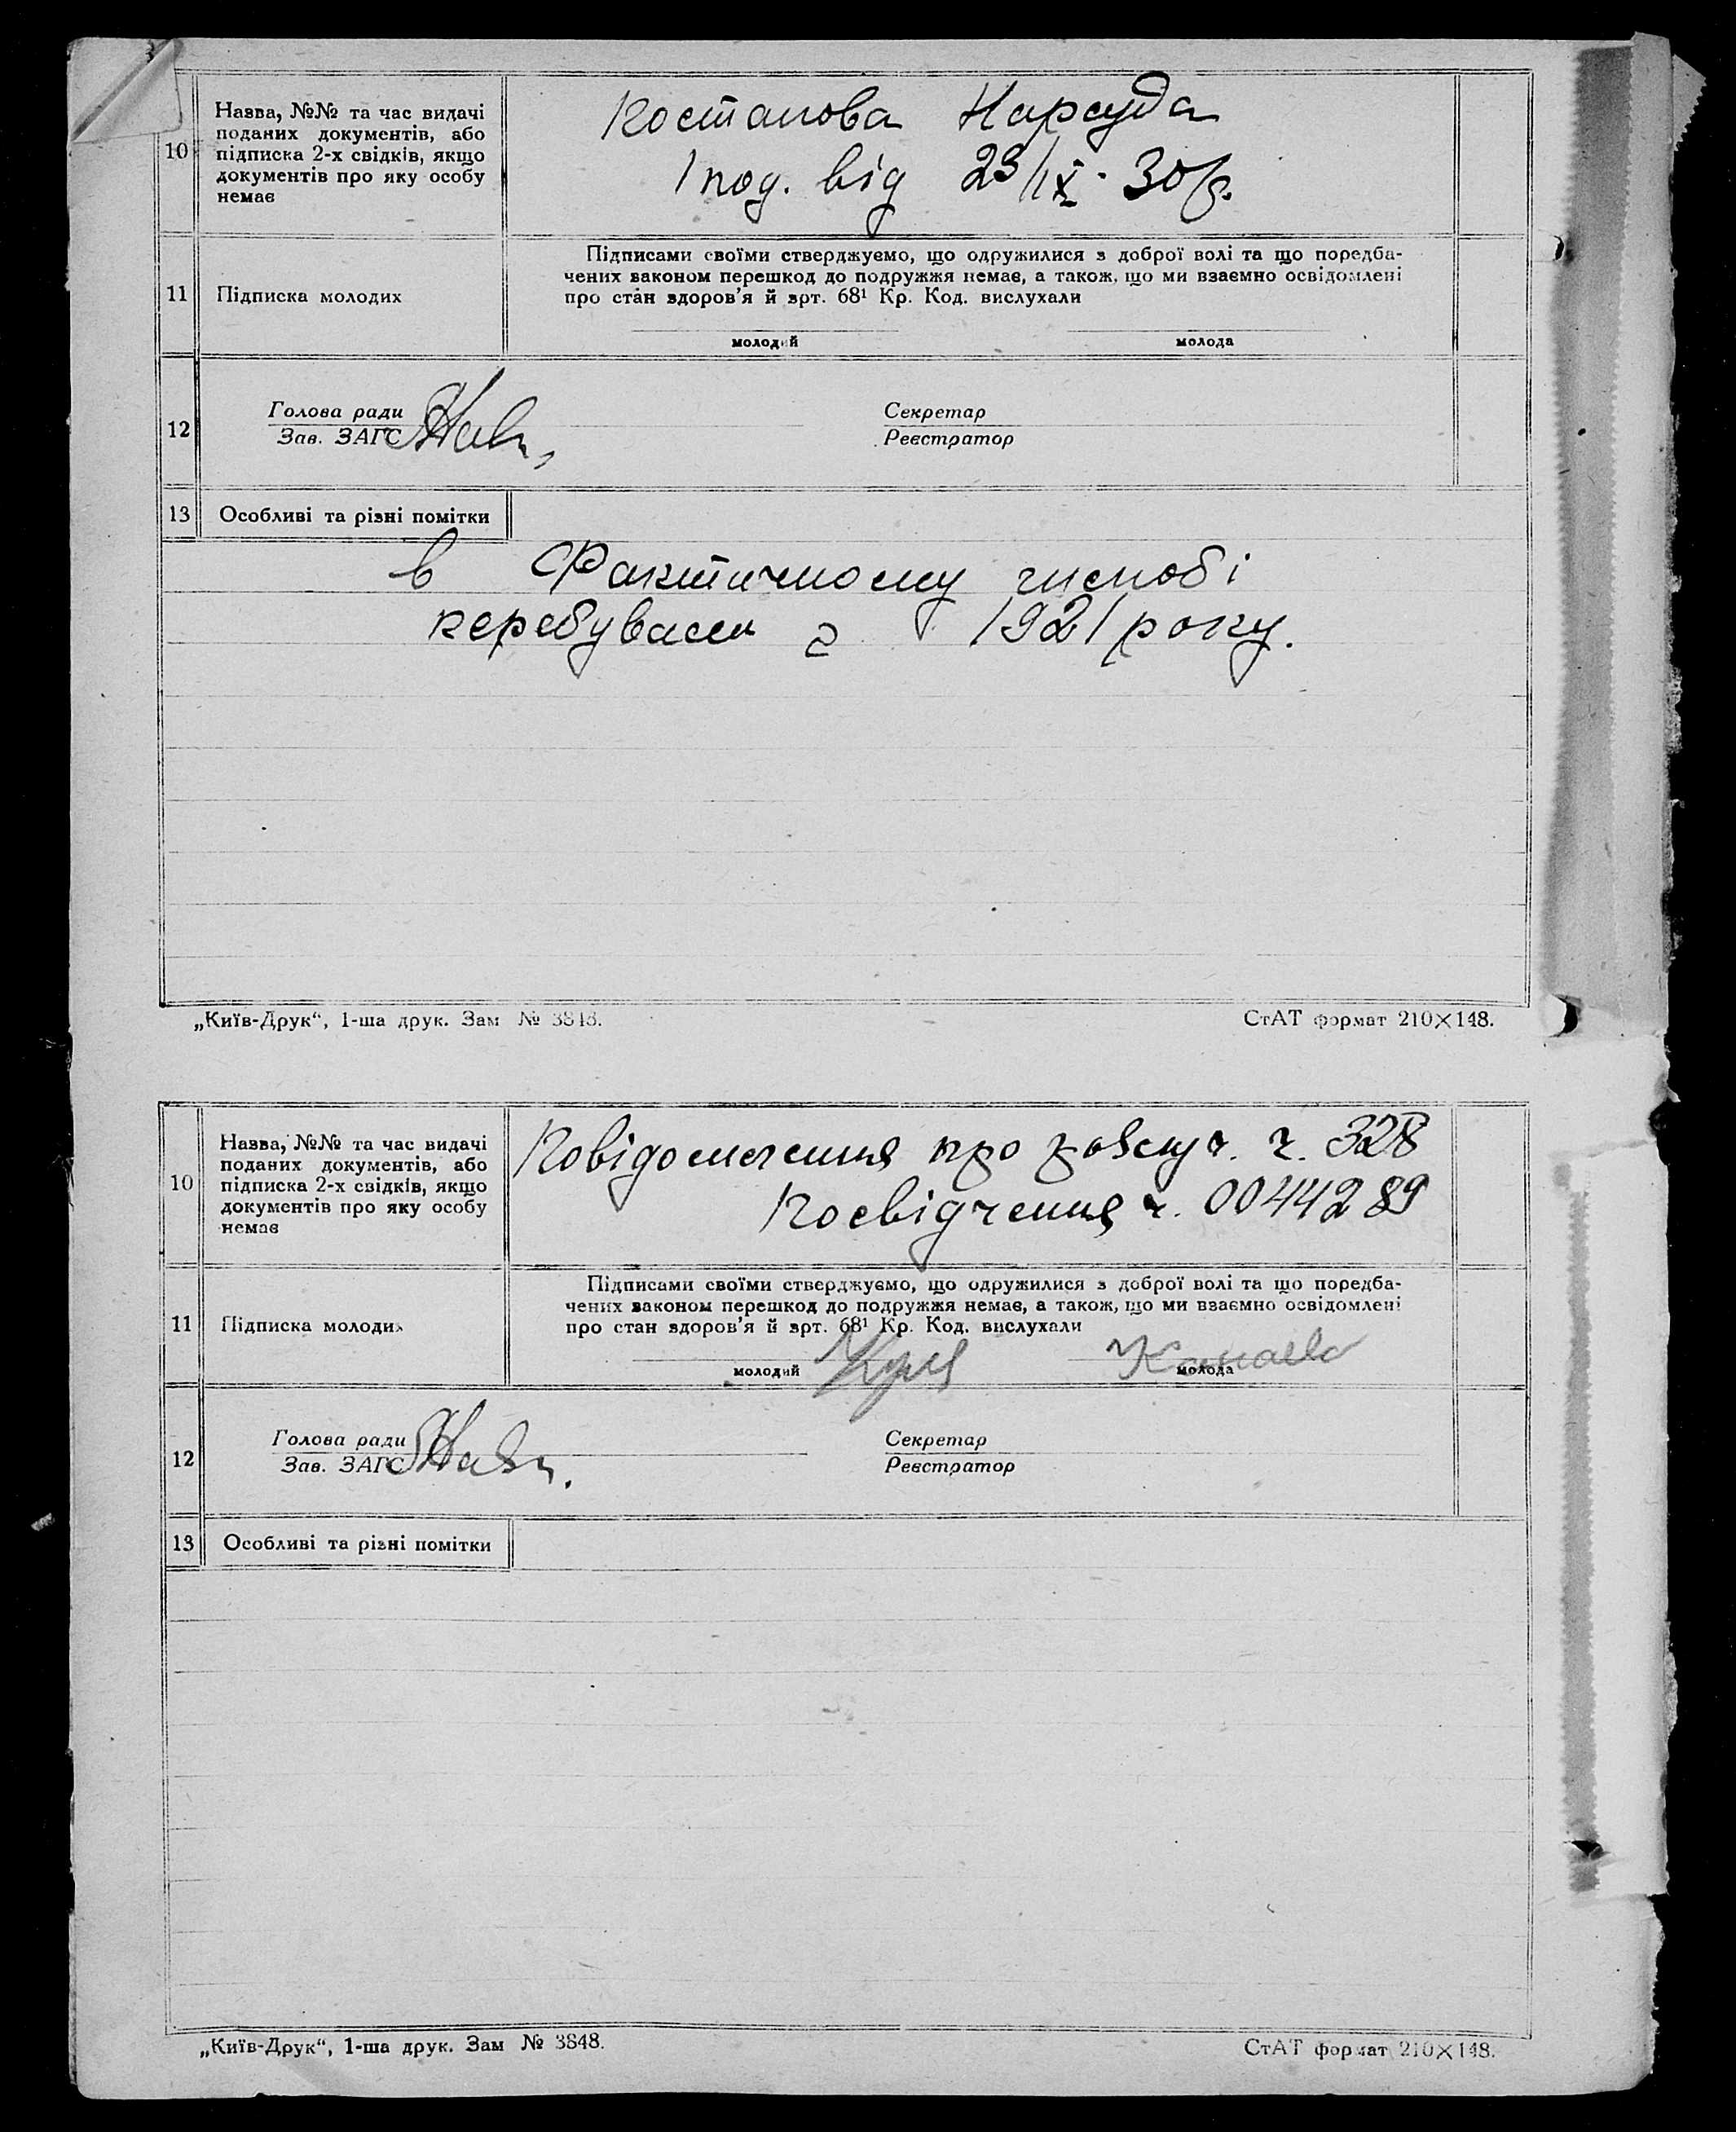 10
Назва, №№ та час видачі
поданих документів, або
підписка 2-х свідків, якщо
документів про яку особу
немає
Постанова Нарсуда
1 под. від 23/IX - 30 р.
11
Підписка молодих
Підписами своїми стверджуємо, що одружилися з доброї волі та що поредба-
чених законом перешкод до подружжя немає, а також, що ми взаємно освідомлені
про стан здоров'я й арт. 68¹ Кр. Код. вислухали
молодий
молода
12
Голова ради
Зав. ЗАГС
Секретар
Реєстратор
13
Особливі та різні помітки
в Фактичному шлюбі
перебували з 1921 року.
„Київ-Друк“, 1-ша друк. Зам № 3848.
СтАТ формат 210×148.
10
Назва, №№ та час видачі
поданих документів, або
підписка 2-х свідків, якщо
документів про яку особу
немає
Повідомлення про ч. 328
Посвідчення ч. 0044289
11
Підписка молодих
Підписами своїми стверджуємо, що одружилися з доброї волі та що поредба-
чених законом перешкод до подружжя немає, а також, що ми взаємно освідомлені
про стан здоров'я й арт. 68¹ Кр. Код. вислухали
молодий
молода
12
Голова ради
Зав. ЗАГС
Секретар
Реєстратор
13
Особливі та різні помітки
„Київ-Друк“, 1-ша друк. Зам № 3848.
СтАТ формат 210×148.